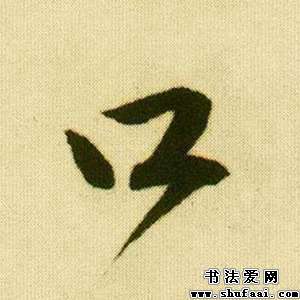 口
书法爱网
www.shufaai.com